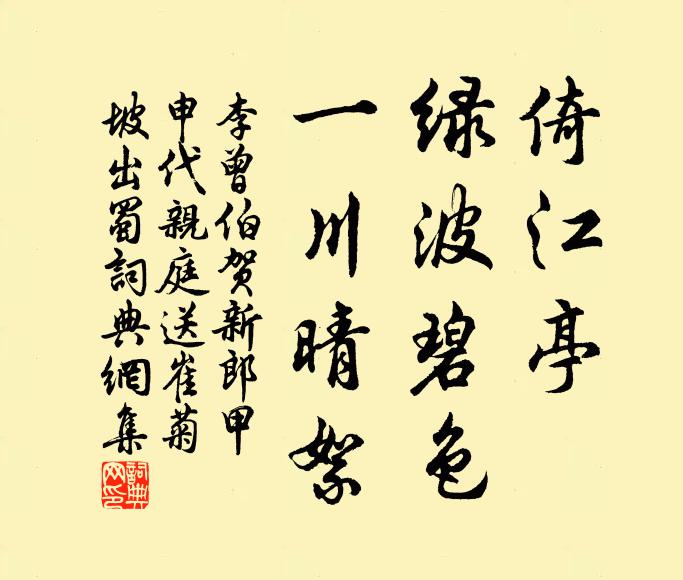 倚江亭
绿波碧色
一川晴絮
李曾伯贺新郎甲
申代親庭送崔菊
坡出蜀詞典網集
詞典网印